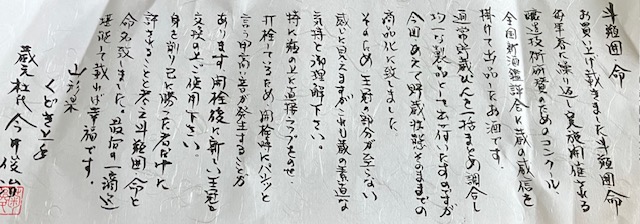 斗瓶囲命
お買い上げ戴きました斗瓶囲命
毎年春に繰り返し実施開催される
醸造技術研賛のためのコンクール
全国新酒鑑評会に蔵の威信を
掛けて出品したお酒です。
通常貯蔵びんを一括まとめ調合し
均一な製品として出荷いたすのですが
今回あえて貯蔵状態そのままでの
商品化に致しました。
そのため王冠の部分が至らない
感に見えますがこれも蔵の素直な
気持と御理解下さい。
特に瓶の上に直接ラップをのせ
打栓しているため開栓時にパンッと
言う甲高い音が発生することが
あります。開栓後に新しい王冠と
交換の上ご使用下さい。
身を削り己に勝った者だけに
許されることと尽え斗瓶囲命と
命名致しました。最后の一滴迄
堪能して載れば幸福です。
山形県
くどき上手
蔵元杜氏 今井俊治